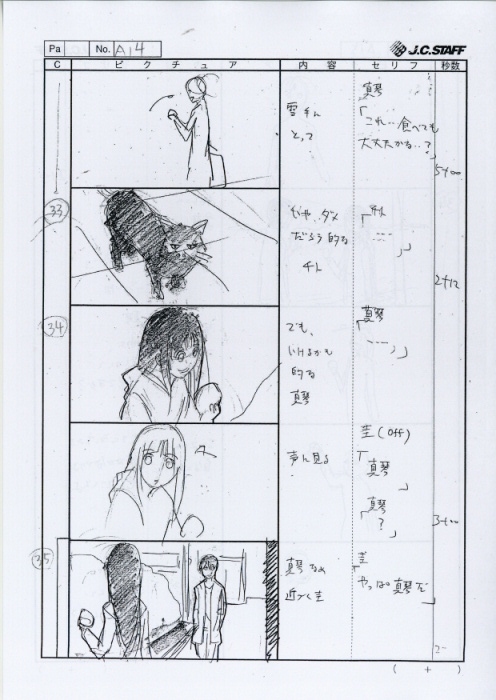 Pa
No. A14
J.C.STAFF
C
ピクチュア
内容
セリフ
秒数
雪手に
とって
真琴
「これ…食べても
大丈夫かな…?」
5+00
33
いや、ダメ
だろう的な
チト
チト
「……」
2+12
34
でも、
いけるかも
的な
真琴
真琴
「……」
声に見る
圭(Off)
「真琴」
「真琴?」
3+00
35
真琴なめ
近づく圭
圭
「やっぱ真琴だ」
( + )